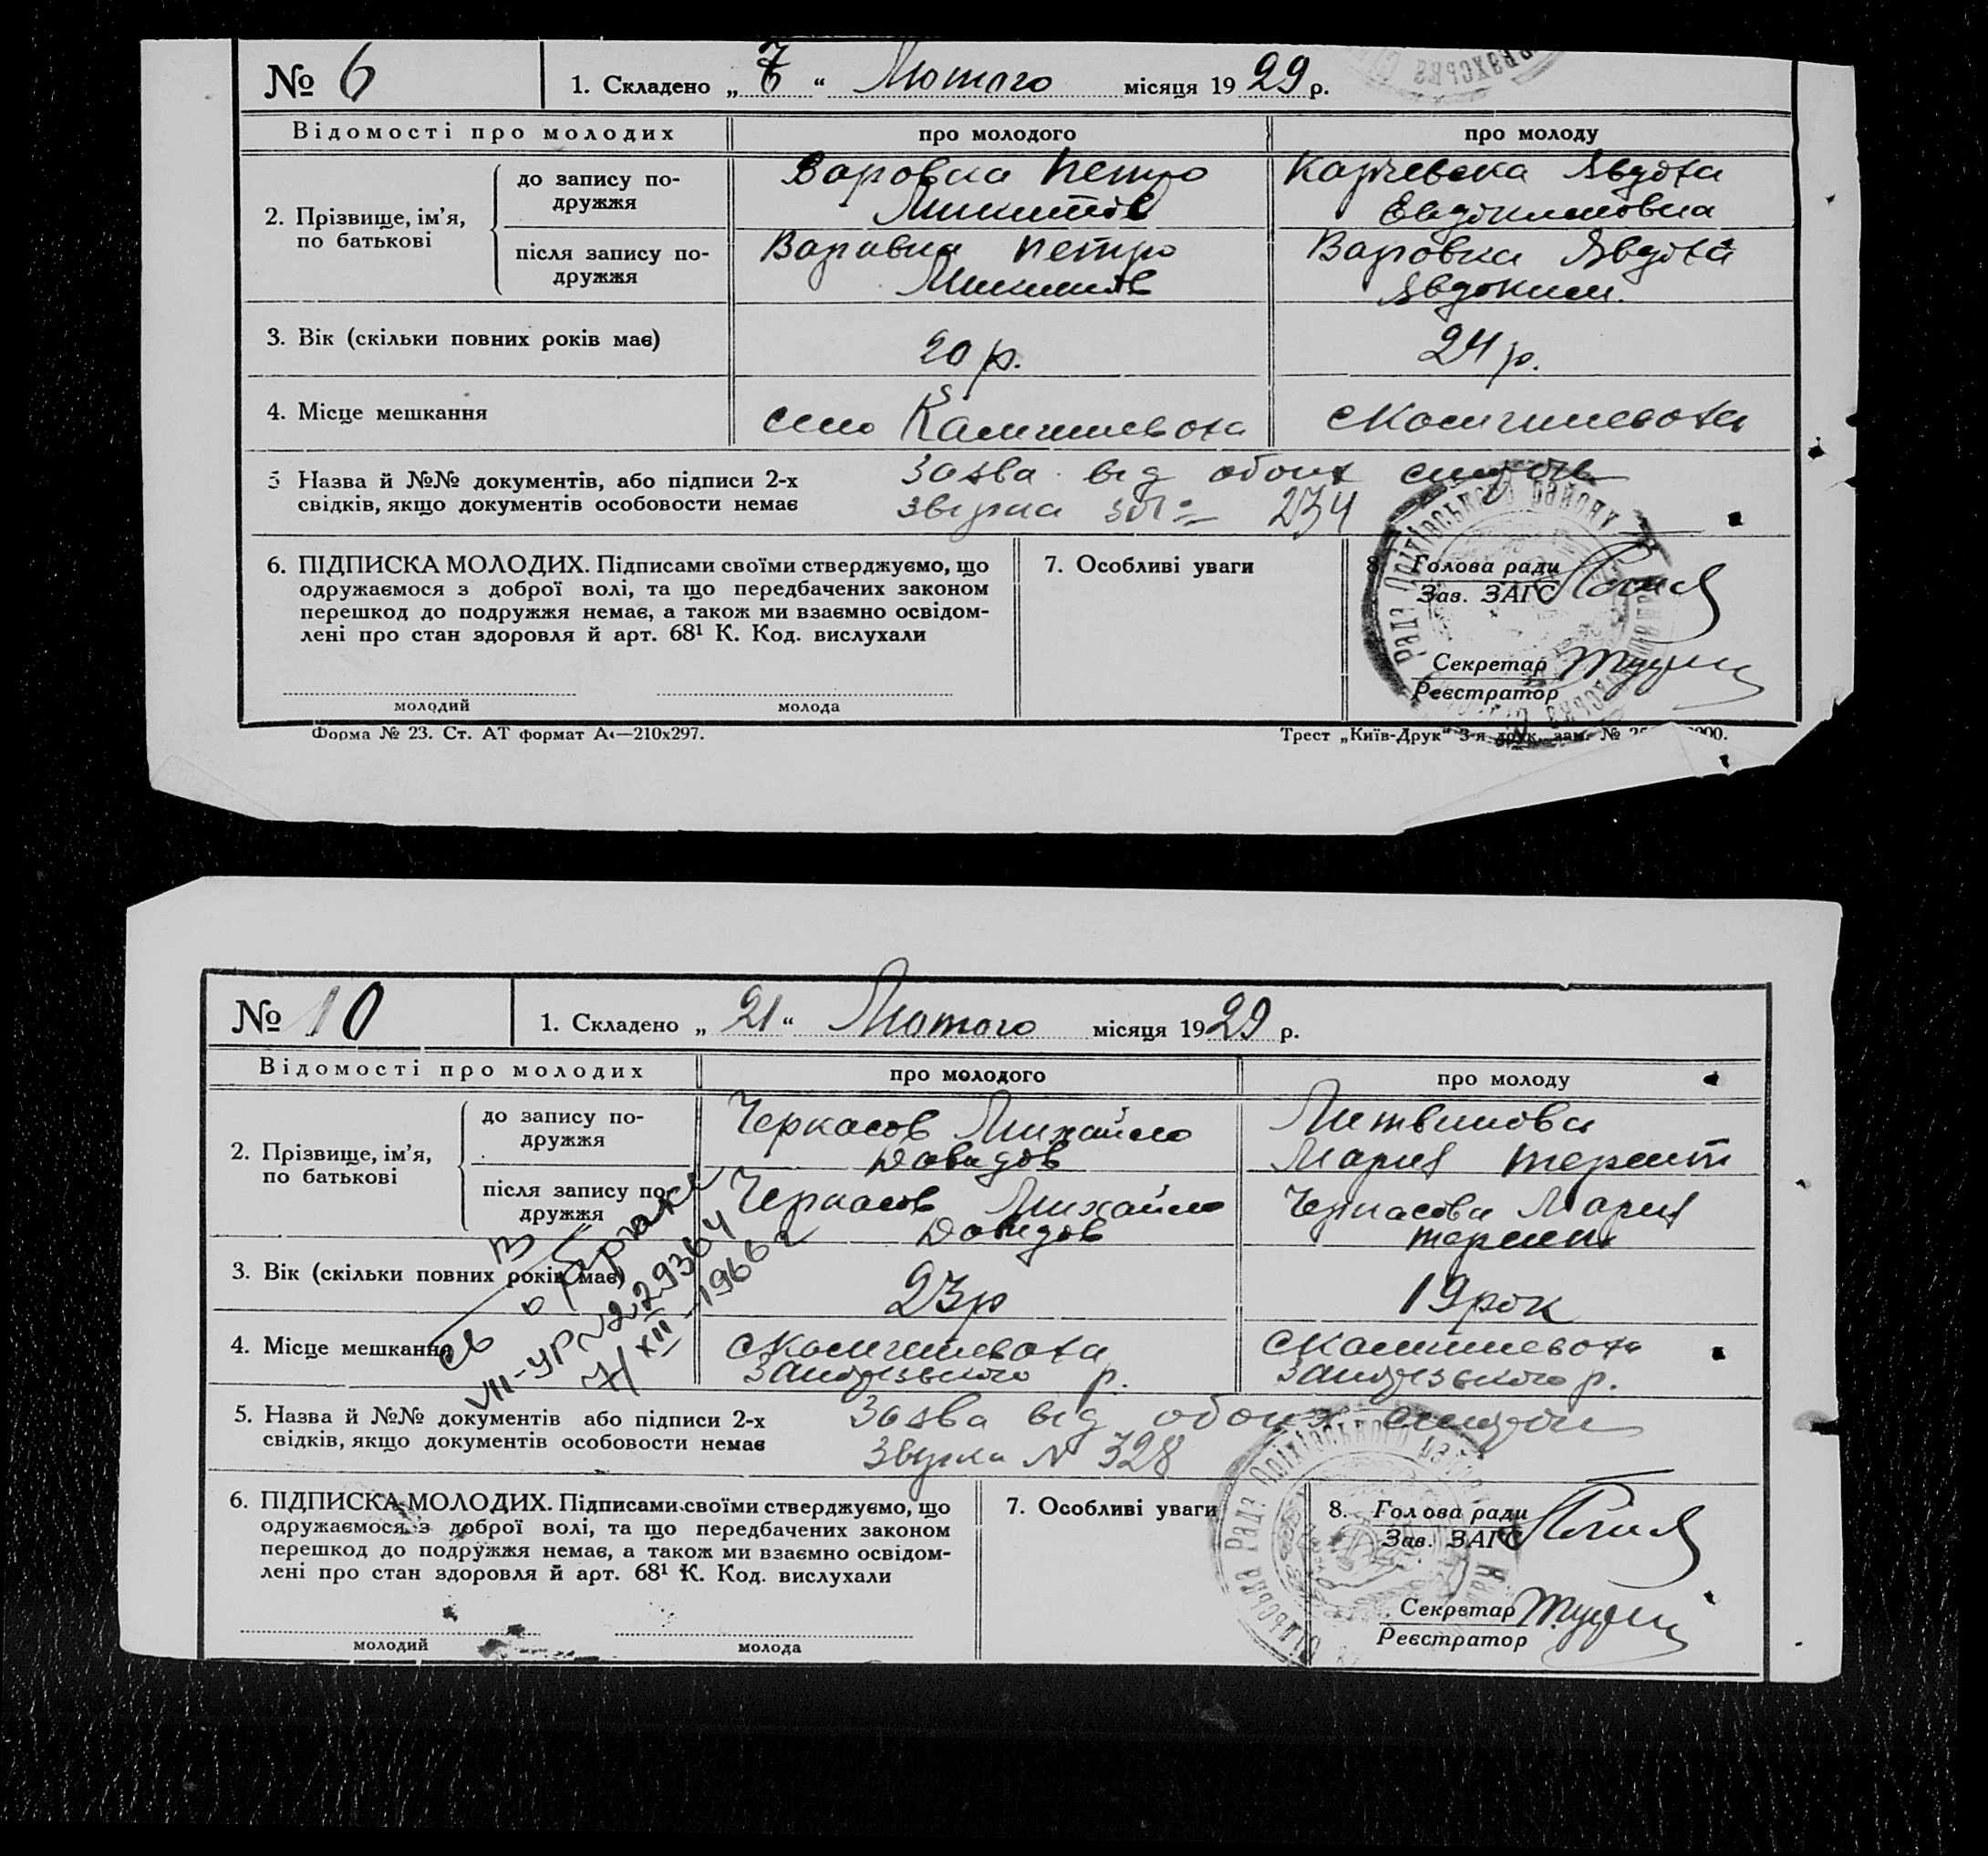 № 6
1. Складено „ 7 “ Лютого місяця 19 29 р.
Відомості про молодих
про молодого
про молоду
2. Прізвище, ім’я, по батькові
до запису по-
дружжя
Варовка Петро
Микитов
Карчевска Явдоха
Евдокимовна
після запису по-
дружжя
Варавка Петро
Микитов
Варовка Явдоха
Явдоким.
3. Вік (скільки повних років має)
20 р.
24 р.
4. Місце мешкання
село Камишеваха
с Камишеваха
5 Назва й №№ документів, або підписи 2-х
свідків, якщо документів особовости немає
Заява від обоих
234
6. ПІДПИСКА МОЛОДИХ. Підписами своїми стверджуємо, що
одружаємося з доброї волі, та що передбачених законом
перешкод до подружжя немає, а також ми взаємно освідом-
лені про стан здоровля й арт. 68¹ К. Код. вислухали
молодий
молода
7. Особливі уваги
8. Голова ради
Зав. ЗАГС
Секретар
Реєстратор
Рада Оріхівського району
Форма № 23. Ст. АТ формат А4—210х297.
Трест „Київ-Друк“ 3-я друк. зам. №
№ 10
1. Складено „ 21 “ Лютого місяця 19 29 р.
Відомості про молодих
про молодого
про молоду
2. Прізвище, ім’я,
по батькові
до запису по-
дружжя
Черкасов Михайло
Давидов
Литвинова
Мария Терент
після запису по-
дружжя
Черкасов Михайло
Давидов
Черкасова Мария
Терент
3. Вік (скільки повних років має)
23 р
19 рок
4. Місце мешкання
с Камишеваха
Запорізького р.
с Камишеваха
Запорізького р.
св о браке
VII-УР №229364
7/XII-1966 г
5. Назва й №№ документів або підписи 2-х
свідків, якщо документів особовости немає
Заява від обоих
N 328
6. ПІДПИСКА МОЛОДИХ. Підписами своїми стверджуємо, що
одружаємося з доброї волі, та що передбачених законом
перешкод до подружжя немає, а також ми взаємно освідом-
лені про стан здоровля й арт. 68¹ К. Код. вислухали
молодий
молода
7. Особливі уваги
8. Голова ради
Зав. ЗАГС
Секретар
Реєстратор
Рада Оріхівського